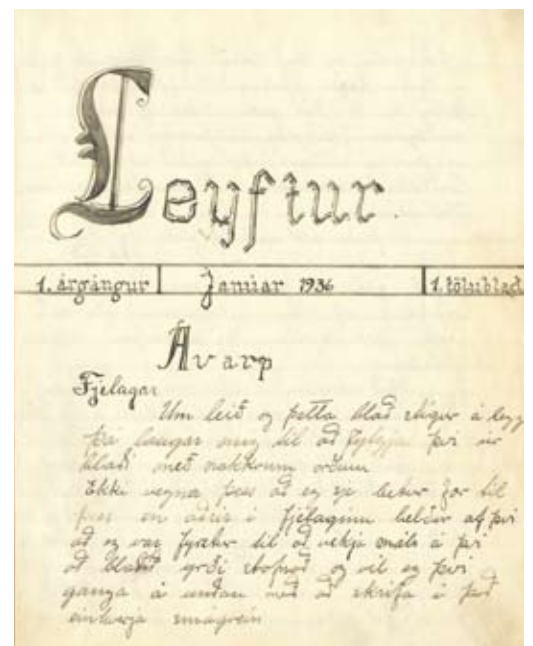 Leyftur.
1. árgangur Janúar 1936 1. tölublað
Ávarp
Fjelagar
Um leið og þetta blað stígur á legg
þá langar mig til að fylgja því úr
hlaði með nokkrum orðum
Ekki vegna þess að eg sje betur fær til
þess en aðrir í fjelaginu heldur af því
að eg var fyrstur til að vekja máls á því
að blað yrði stofnað og vil eg því
ganga á undan með að skrifa í það
einhverja smágrein